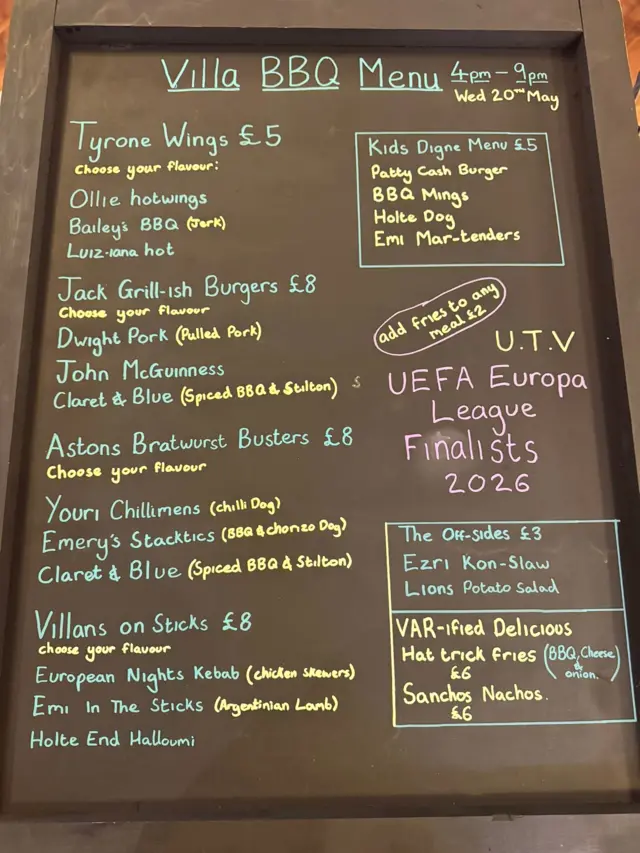 Villa BBQ Menu 4pm - 9pm
Wed 20TH May
Tyrone Wings £5
Choose your flavour:
Ollie hotwings
Bailey's BBQ (Jerk)
Luiz-iana hot
Jack Grill-ish Burgers £8
Choose your flavour
Dwight Pork (Pulled Pork)
John McGuinness
Claret & Blue (Spiced BBQ & Stilton)
Astons Bratwurst Busters £8
Choose your flavour
Youri Chillimens (chilli Dog)
Emery's Stacktics (BBQ & chorizo Dog)
Claret & Blue (Spiced BBQ & Stilton)
Villans on Sticks £8
choose your flavour
European Nights Kebab (chicken skewers)
Emi In The Sticks (Argentinian Lamb)
Holte End Halloumi
Kids Digne Menu £5
Patty Cash Burger
BBQ Mings
Holte Dog
Emi Mar-tenders
add fries to any
meal £2
U.T.V
UEFA Europa
League
Finalists
2026
The Off-sides £3
Ezri Kon-Slaw
Lions Potato Salad
VAR-ified Delicious
Hat trick fries (BBQ, Cheese
& onion.)
£6
Sanchos Nachos.
£6